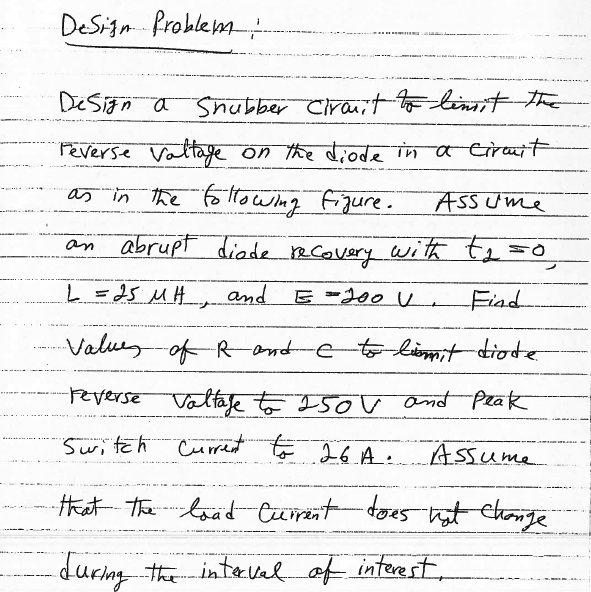 Design Problem :
Design a Snubber Circuit to limit the
reverse voltage on the diode in a circuit
as in the following figure. Assume
an abrupt diode recovery with t2 = 0,
L = 25 μH, and E = 200 V. Find
Values of R and C to limit diode
reverse voltage to 250 V and Peak
Switch Current to 26 A. Assume
that the load Current does not change
during the interval of interest.